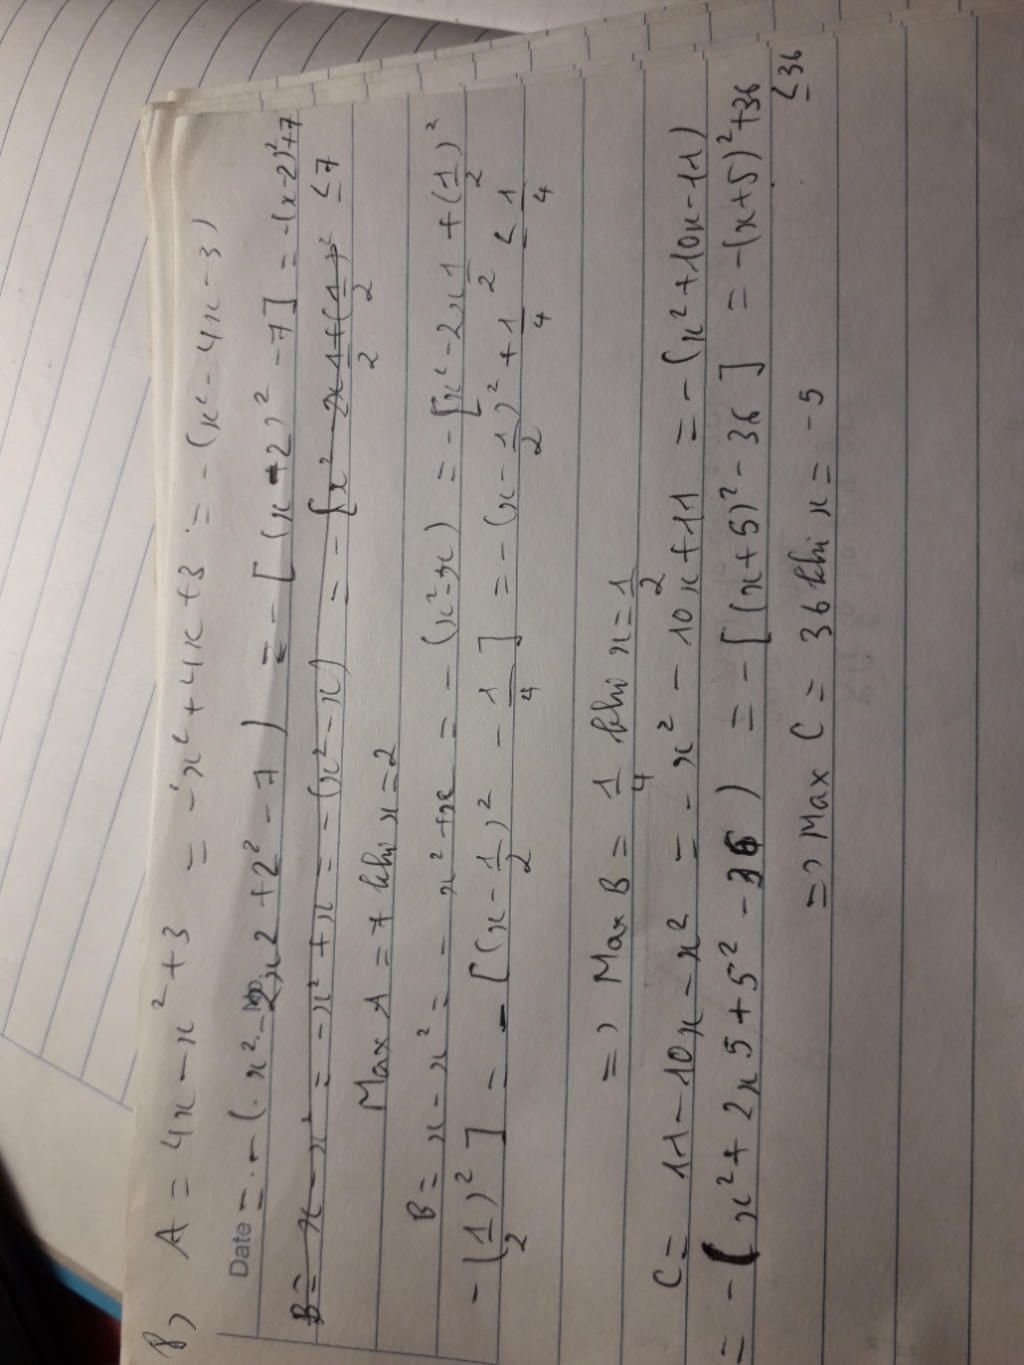 B) A = 4x - x² + 3 = -x² + 4x + 3 = -(x² - 4x - 3)
Date = -(x² - 2x2 + 2² - 7) = -[(x - 2)² - 7] = -(x-2)²+7
B = x - x² = -x² + x = -(x² - x) = -[x² - 2x 1/2 + (1/2)² ≤ 7
Max A = 7 khi x = 2
B = x - x² = -x² + x = -(x² - x) = -[x² - 2x 1/2 + (1/2)²
-(1/2)²] = -[(x - 1/2)² - 1/4] = -(x - 1/2)² + 1/4 ≤ 1/4
=> Max B = 1/4 khi x = 1/2
C = 11 - 10x - x² = -x² - 10x + 11 = -(x² + 10x - 11)
= -(x² + 2x5 + 5² - 36) = -[(x+5)² - 36] = -(x+5)² + 36
≤ 36
=> Max C = 36 khi x = -5